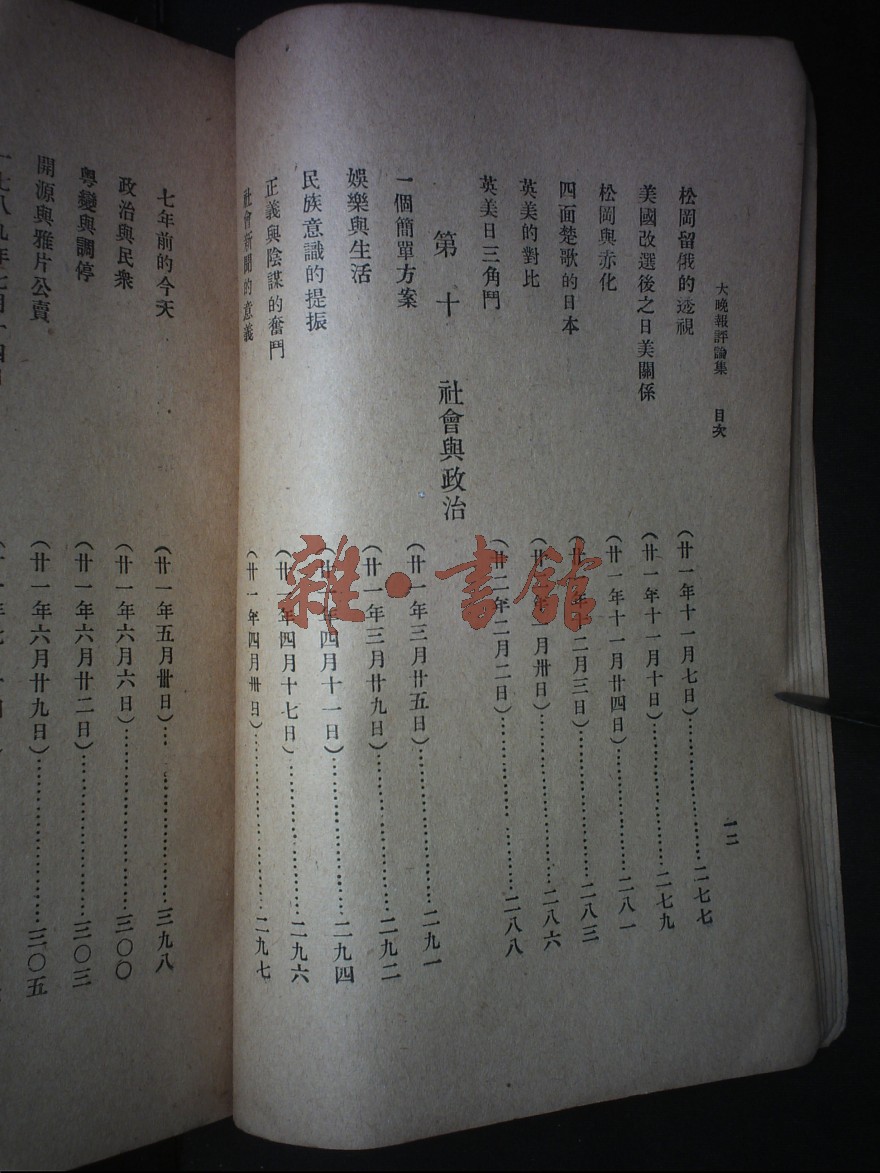 大晚報評論集　目次
一二
松岡留俄的透視　(廿一年十一月七日)……二七七
美國改選後之日美關係　(廿一年十一月十日)……二七九
松岡與赤化　(廿一年十一月廿四日)……二八一
四面楚歌的日本　月三日)……二八三
英美的對比　月卅日)……二八六
英美日三角鬥　年二月二日)……二八八
第十　社會與政治
一個簡單方案　(廿一年三月廿五日)……二九一
娛樂與生活　(廿一年三月廿九日)……二九二
民族意識的提振　四月十一日)……二九四
正義與陰謀的奮鬥　年四月十七日)……二九六
社會新聞的意義　(廿一年四月卅日)……二九七
七年前的今天　(廿一年五月卅日)……三九八
政治與民衆　(廿一年六月六日)……三〇〇
粵變與調停　(廿一年六月廿二日)……三〇三
開源與雅片公賣　(廿一年六月廿九日)……三〇五
雜·書館